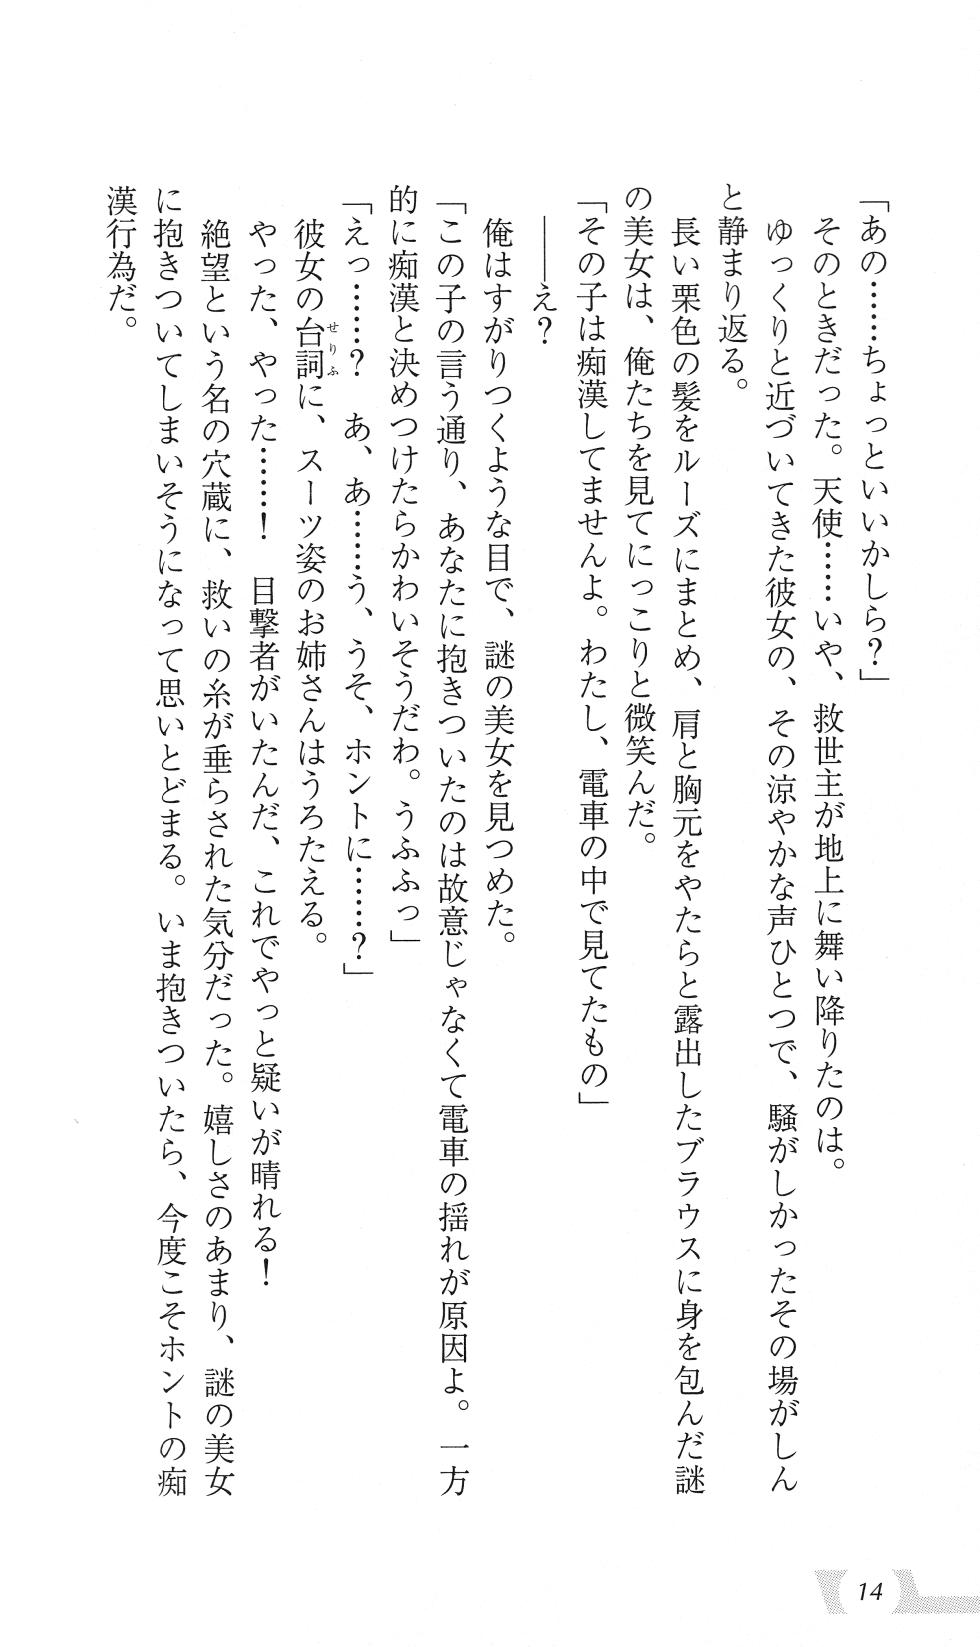 「あの……ちょっといいかしら？」
そのときだった。天使……いや、救世主が地上に舞い降りたのは。
ゆっくりと近づいてきた彼女の、その涼やかな声ひとつで、騒がしかったその場がしん
と静まり返る。
長い栗色の髪をルーズにまとめ、肩と胸元をやたらと露出したブラウスに身を包んだ謎
の美女は、俺たちを見てにっこりと微笑んだ。
「その子は痴漢してませんよ。わたし、電車の中で見てたもの」
――え？
俺はすがりつくような目で、謎の美女を見つめた。
「この子の言う通り、あなたに抱きついたのは故意じゃなくて電車の揺れが原因よ。一方
的に痴漢と決めつけたらかわいそうだわ。うふふっ」
「えっ……？　あ、あ……う、うそ、ホントに……？」
彼女の台詞に、スーツ姿のお姉さんはうろたえる。
せりふ
やった、やった……！　目撃者がいたんだ、これでやっと疑いが晴れる！
絶望という名の穴蔵に、救いの糸が垂らされた気分だった。嬉しさのあまり、謎の美女
に抱きついてしまいそうになって思いとどまる。いま抱きついたら、今度こそホントの痴
漢行為だ。
14